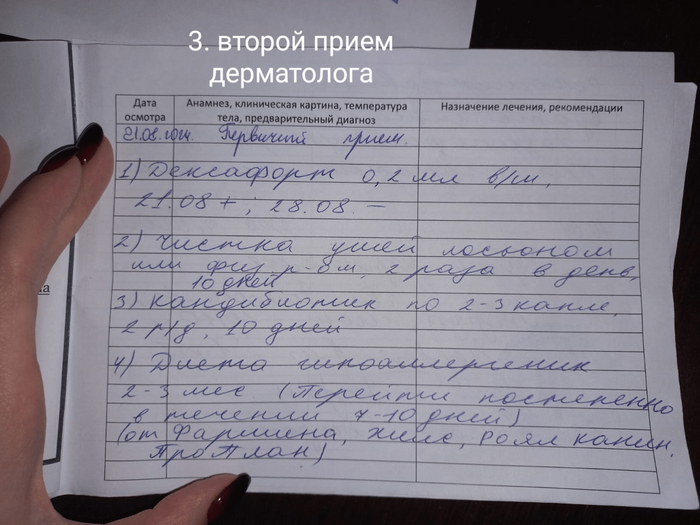 3. второй прием
дерматолога
Дата осмотра
Анамнез, клиническая картина, температура тела, предварительный диагноз
Назначение лечения, рекомендации
Первичный прием.
1) Дексафорт 0,2 мл в/м,
21.08 + ; 28.08. —
2) Чистка ушей лосьоном
или физ р-ом, 2 раза в день,
10 дней
3) кандибиотик по 2-3 капле,
2 р/д, 10 дней
4) Диета гипоаллергеник
2-3 мес (Перейти постепенно
в течении 7-10 дней)
(от Фармина, Хилс, Роял канин,
ПроПлан)
на